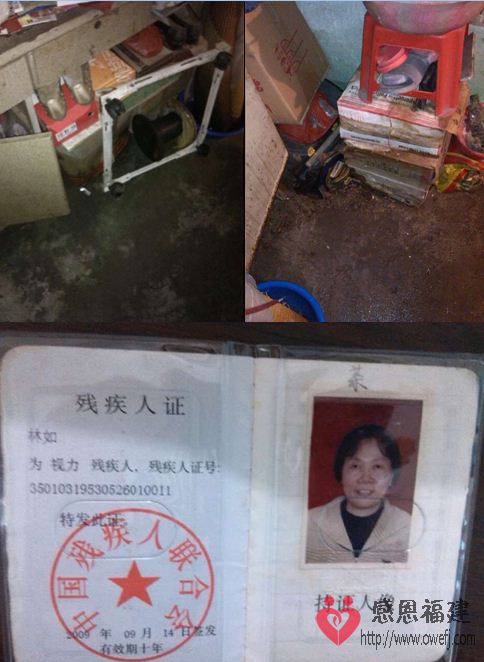 残疾人证
林如
为 视力 残疾人，残疾人证号:
35010319530526010011
特发此证。
中国残疾人联合会
2009 年 09 月 14 日签发
有效期十年
持证人像
感恩福建
http://www.owefj.com